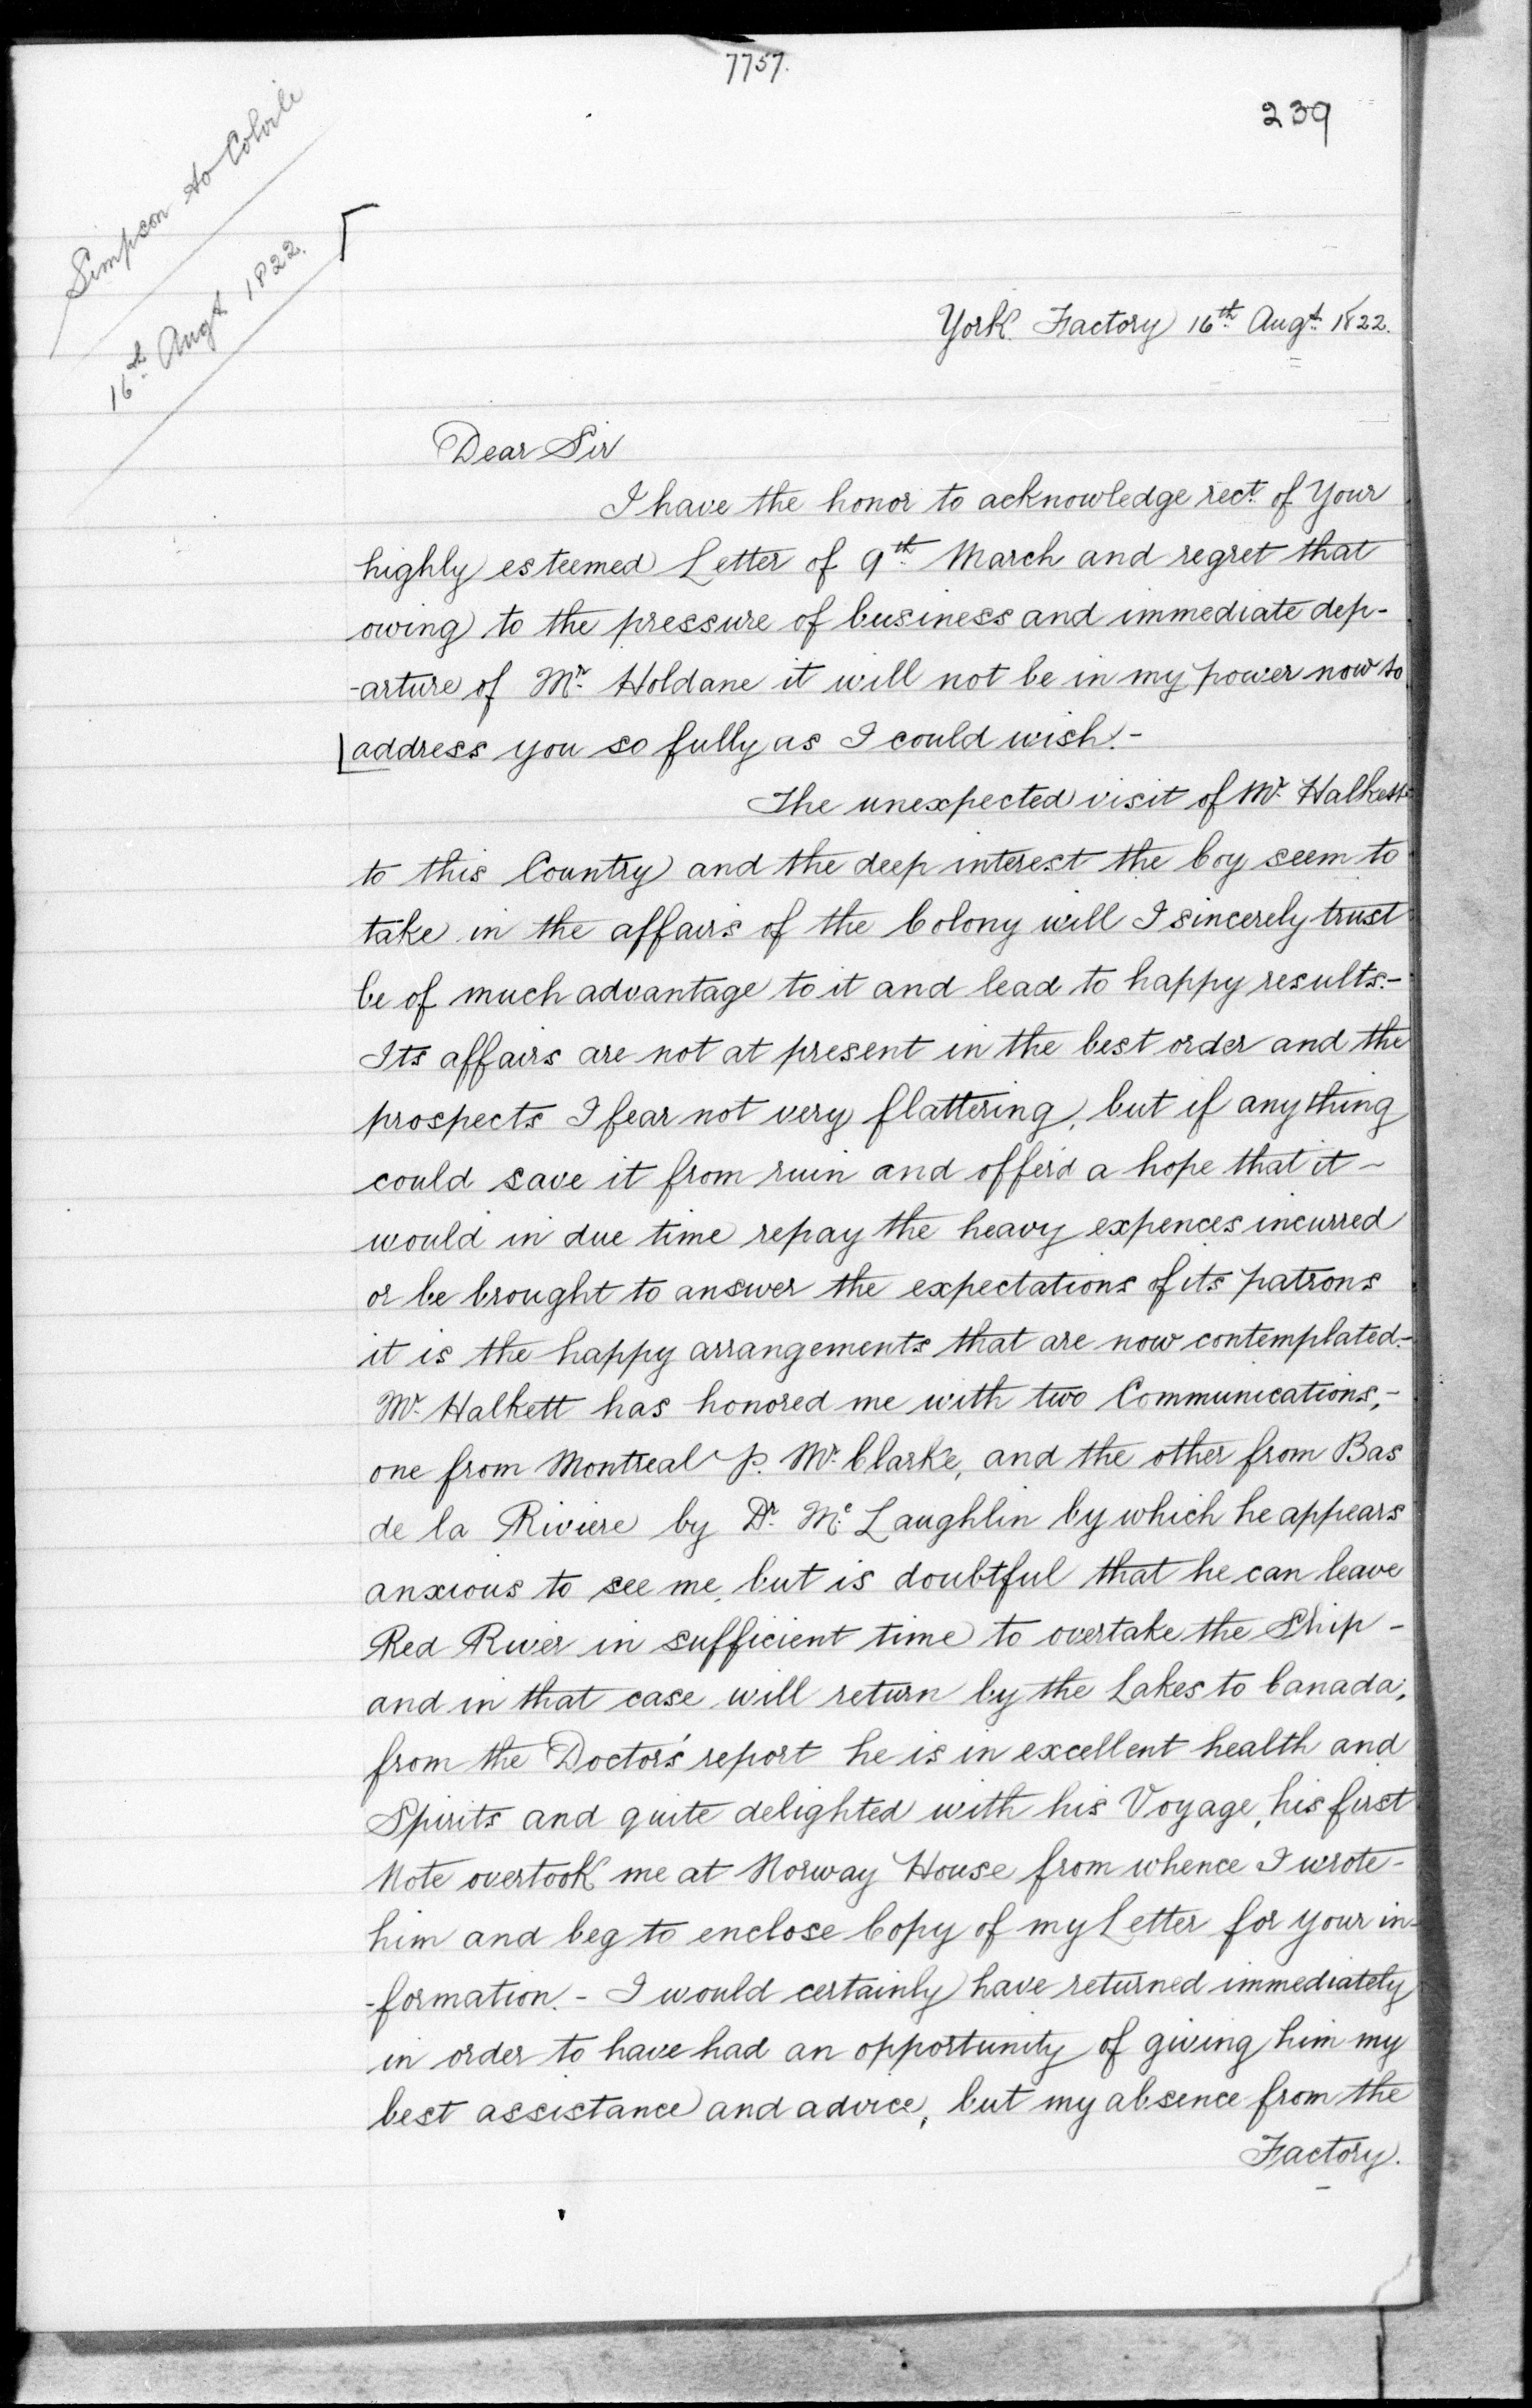 7757.
239
Simpson to Colvile
16th Augt 1822.
York Factory 16th Augt 1822.
Dear Sir
I have the honor to acknowledge rect. of Your
highly esteemed Letter of 9th March and regret that
owing to the pressure of business and immediate dep-
-arture of Mr. Holdane it will not be in my power now to
address you so fully as I could wish.-
The unexpected visit of Mr. Halkett
to this Country and the deep interest the Coy seem to
take in the affairs of the Colony will I sincerely trust
be of much advantage to it and lead to happy results.-
Its affairs are not at present in the best order and the
prospects I fear not very flattering, but if any thing
could save it from ruin and offer'd a hope that it -
would in due time repay the heavy expences incurred
or be brought to answer the expectations of its patrons
it is the happy arrangements that are now contemplated.-
Mr. Halkett has honored me with two Communications,-
one from Montreal p. Mr. Clarke, and the other from Bas
de la Riviere by Dr. Mc Laughlin by which he appears
anxious to see me, but is doubtful that he can leave
Red River in sufficient time to overtake the Ship -
and in that case will return by the Lakes to Canada;
from the Doctor's report he is in excellent health and
Spirits and quite delighted with his Voyage, his first
Note overtook me at Norway House from whence I wrote -
him and beg to enclose Copy of my Letter for your in-
-formation. - I would certainly have returned immediately
in order to have had an opportunity of giving him my
best assistance and advice, but my absence from the
Factory.